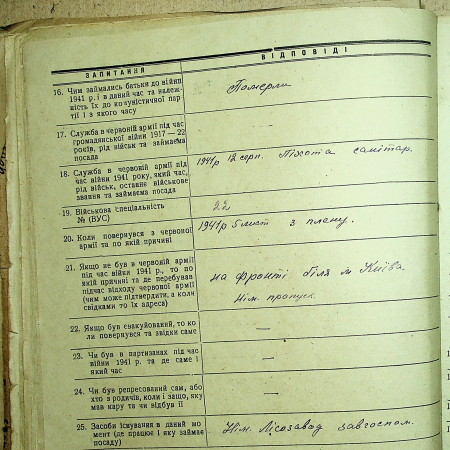 ЗАПИТАННЯ
ВІДПОВІДІ
16. Чим займались батьки до війни
1941 р. і в даний час та належ-
ність їх до комуністичної пар-
тії і з якого часу
Померли
17. Служба в червоній армії під час
громадянської війни 1917—22
років, рід військ та займаєма
посада
—
18. Служба в червоній армії під
час війни 1941 року, який час,
рід військ, останнє військове
звання та займаєма посада
1941р 12 серп. Піхота санітар.
19. Військова спеціальність
№ (ВУС)
22
20. Коли повернувся з червоної
армії та по якій причині
1941р 5 лист з плену.
21. Якщо не був в червоній армії
під час війни 1941 р., то по
якій причині та де перебував
підчас відходу червоної армії
(чим може підтвердити, а коли
свідками то їх адреса)
на фронті біля м Київа
Нім. пропуск
22. Якщо був евакуйований, то ко-
ли повернувся та звідки саме
—
23. Чи був в партизанах під час
війни 1941 р. та де саме і
який час
—
24. Чи був репресований сам, або
хто з родичів, коли і защо, яку
мав кару та чи відбув її
—
25. Засоби існування в даний мо-
мент (де працює і яку займає
посаду)
Нім. Лісозавод завгоспом.